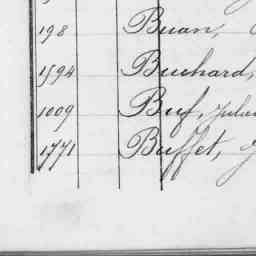 198 Buan,
1594 Buchard,
1009 Buf, Julien
1771 Buffet, J